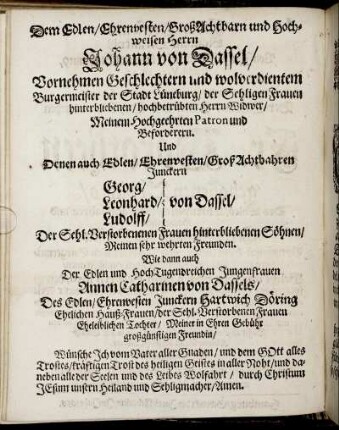 Dem Edlen/ Ehrenvesten/ GroßAchtbarn und Hoch-
weisen Herrn
Johann von Dassel/
Vornehmen Geschlechtern und wolverdientem
Burgermeister der Stadt Lüneburg/ der Sehligen Frauen
hinterbliebenen/ hochbetrübten Herrn Widwer/
Meinem Hochgeehrten Patron und
Beforderern.
Und
Denen auch Edlen/ Ehrenvesten/ Groß Achtbahren
Junckern
Georg/
Leonhard/ von Dassel/
Ludolff/
Der Sehl. Verstorbenen Frauen hinterbliebenen Söhnen/
Meinen sehr wehrten Freunden.
Wie dann auch
Der Edlen und Hoch Tugendreichen Jungenfrauen
Annen Catharinen von Dassels/
Des Edlen/ Ehrenvesten Junckern Hartwich Döring
Ehelichen Hauß-Frauen/ der Sehl. Verstorbenen Frauen
Eheleiblichen Tochter/ Meiner in Ehren Gebühr
großgünstigen Freundin/
Wünsche Ich vom Vater aller Gnaden/ und dem GOtt alles
Trostes/ kräfftigen Trost des heiligen Geistes in aller Noht/ und da-
neben alle der Seelen und des Leibes Wolfahrt/ durch Christum
JEsum unsern Heiland und Sehligmacher/ Amen.